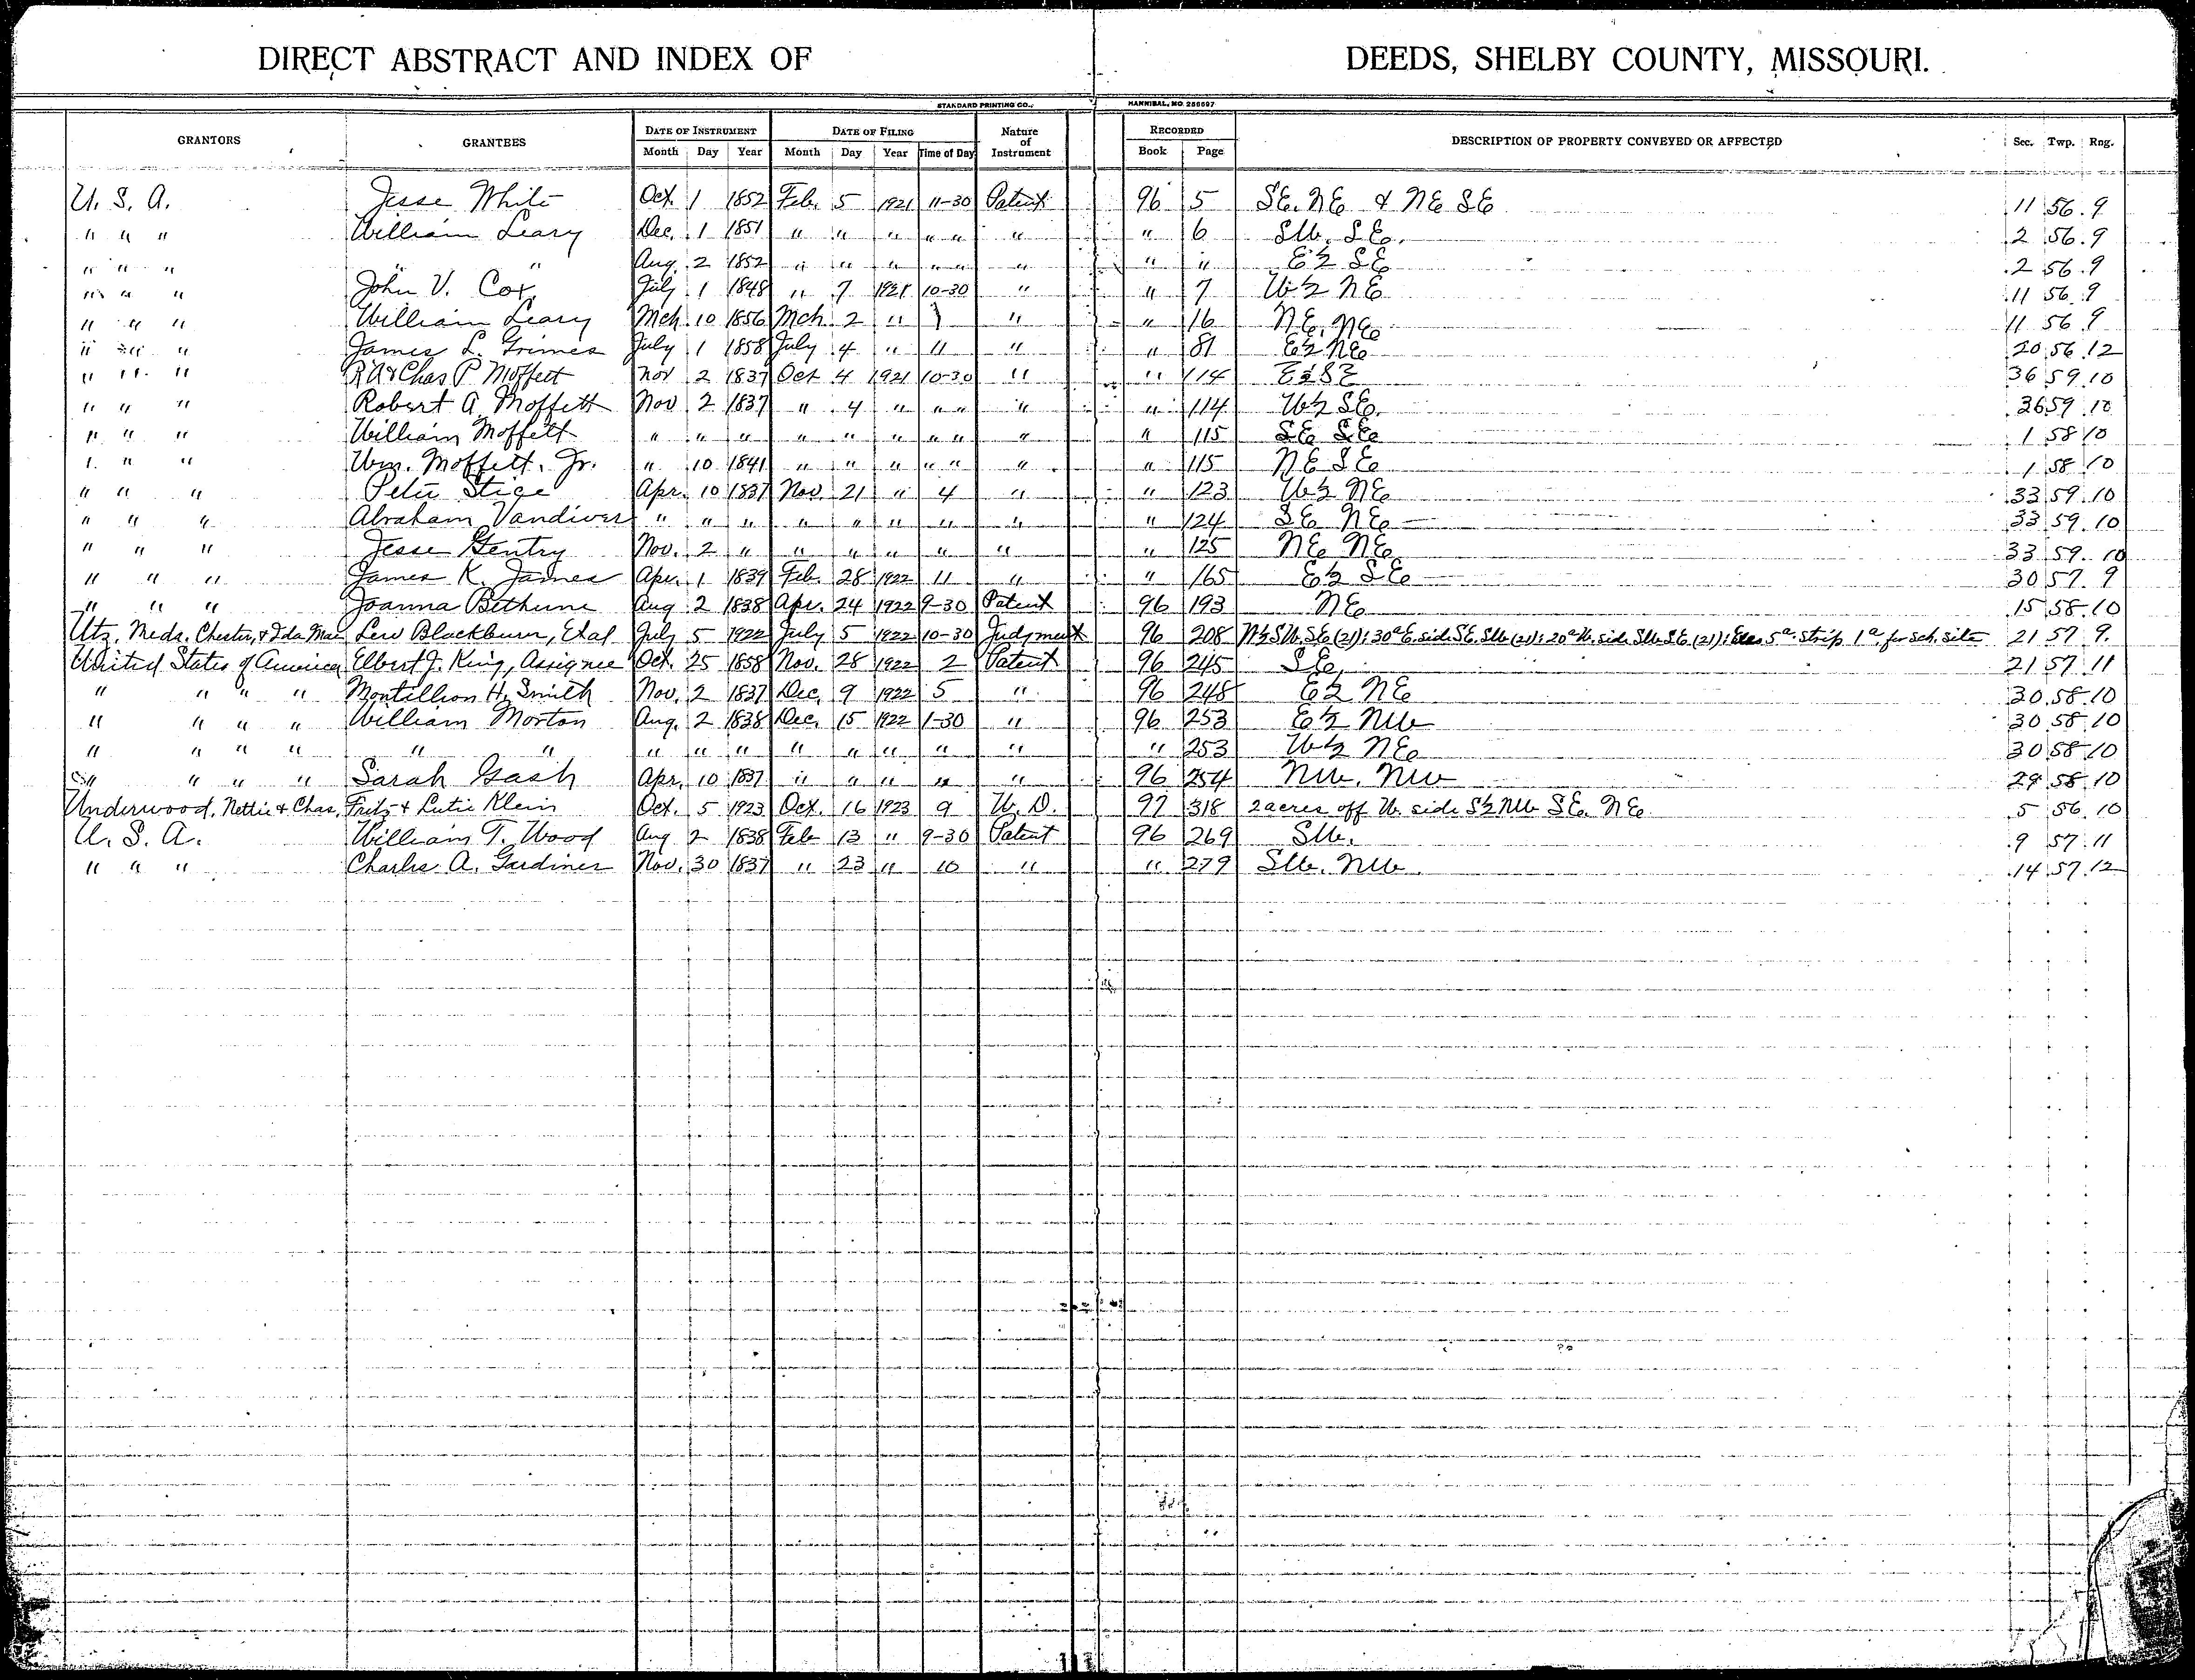 DIRECT ABSTRACT AND INDEX OF DEEDS, SHELBY COUNTY, MISSOURI.
STANDARD PRINTING CO., HANNIBAL, MO. 256697
GRANTORS GRANTEES DATE OF INSTRUMENT DATE OF FILING Nature of Instrument RECORDED DESCRIPTION OF PROPERTY CONVEYED OR AFFECTED Sec. Twp. Rng.
Month Day Year Month Day Year Time of Day Book Page
U. S. A. Jesse White Oct. 1 1852 Feb. 5 1921 11-30 Patent 96 5 SE. NE & NE SE 11 56 9
" " " William Leary Dec. 1 1851 " " " " " " " 6 SW. SE. 2 56 9
" " " " " Aug. 2 1852 " " " " " " " " E½ SE 2 56 9
" " " John V. Cox July 1 1848 " 7 1921 10-30 " " 7 W½ NE 11 56 9
" " " William Leary Mch. 10 1856 Mch. 2 " 1 " " 16 NE. NE 11 56 9
" " " James L. Grimes July 1 1858 July 4 " 11 " " 81 E½ NE 20 56 12
" " " R A & Chas P Moffett Nov 2 1837 Oct 4 1921 10-30 " " 114 E½ SE 36 59 10
" " " Robert A. Moffett Nov 2 1837 " 4 " " " " " 114 W½ SE. 36 59 10
" " " William Moffett " " " " " " " " " " 115 SE SE 1 58 10
" " " Wm. Moffett, Jr. " 10 1841 " " " " " " " 115 NE SE 1 58 10
" " " Peter Stice Apr. 10 1837 Nov. 21 " 4 " " 123 W½ NE 33 59 10
" " " Abraham Vandiver " " " " " " " " " 124 SE NE 33 59 10
" " " Jesse Gentry Nov. 2 " " " " " " " 125 NE NE 33 59 10
" " " James K. James Apr. 1 1839 Feb. 28 1922 11 " " 165 E½ SE 30 57 9
" " " Joanna Bethune Aug 2 1838 Apr. 24 1922 9-30 Patent 96 193 NE 15 58 10
Utz, Meda, Chester, & Ida Mae Lew Blackburn, Etal July 5 1922 July 5 1922 10-30 Judgment 96 208 W½ SW. SE (21); 30a E. side SE. SW (21); 20a W. side SW SE (21); 5a strip 1a for sch. site 21 57 9.
United States of America Elbert J. King, Assignee Oct. 25 1858 Nov. 28 1922 2 Patent 96 245 SE. 21 57 11
" " " " Montillion H. Smith Nov. 2 1837 Dec. 9 1922 5 " 96 248 E½ NE 30 58 10
" " " " William Morton Aug. 2 1838 Dec. 15 1922 1-30 " 96 253 E½ NW 30 58 10
" " " " " " " " " " " " " " " 253 W½ NE 30 58 10
" " " " Sarah Gash Apr. 10 1837 " " " " " 96 254 NW. NW 29 58 10
Underwood, Nettie & Chas. Fritz & Lutie Klein Oct. 5 1923 Oct. 16 1923 9 W. D. 97 318 2 acres off W. side S½ NW SE. NE 5 56 10
U. S. A. William T. Wood Aug 2 1838 Feb 13 " 9-30 Patent 96 269 SW. 9 57 11
" " " Charles A. Gardiner Nov. 30 1837 " 23 " 10 " " 279 SW. NW. 14 57 12